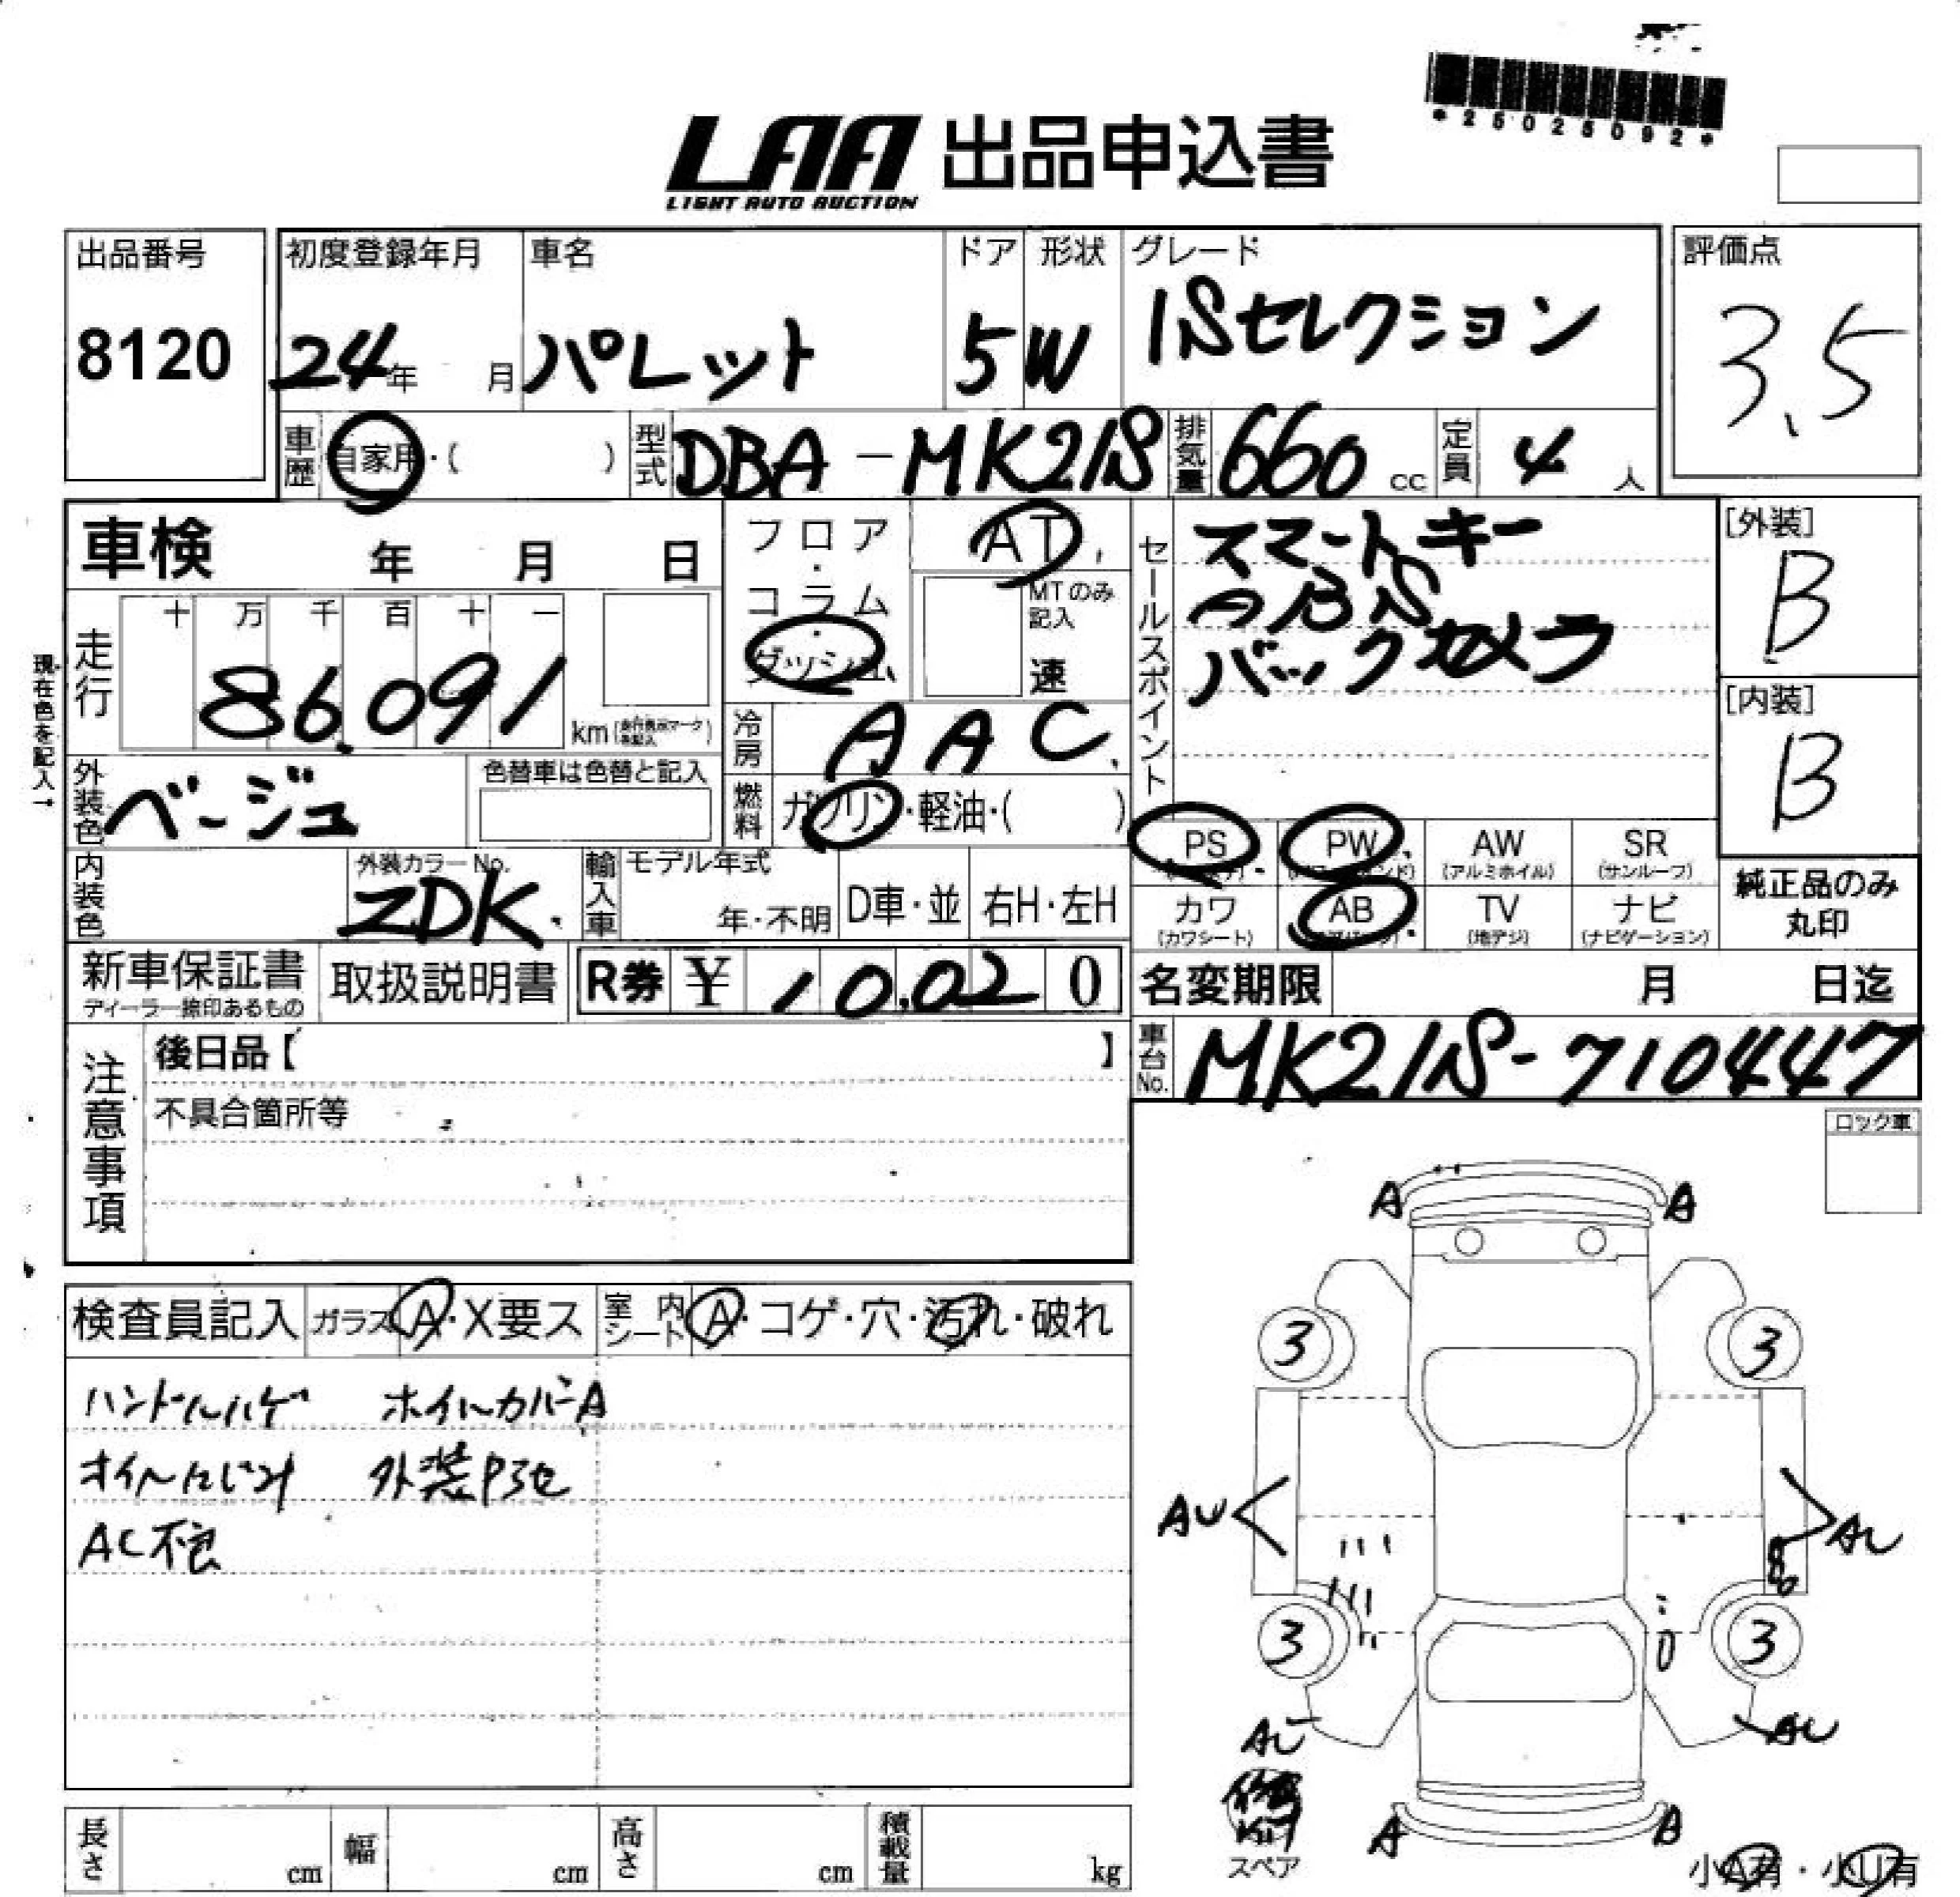 *25025092*
LAA 出品申込書
LIGHT AUTO AUCTION
出品番号
8120
初度登録年月
24年 月
車名
パレット
ドア
5
形状
W
グレード
ISセレクション
評価点
3.5
車歴
自家用・( )
型式
DBA-MK21S
排気量
660 cc
定員
4 人
車検 年 月 日
フロア・コラム・ダッシュ
AT
MTのみ記入
速
セールスポイント
スマートキー
ABS
バックカメラ
[外装]
B
[内装]
B
現在色を記入→
走行
十 万 千 百 十 一
86,091
km
冷房
AAC
外装色
ベージュ
色替車は色替と記入
燃料
ガソリン・軽油・( )
PS
PW
AW
(アルミホイル)
SR
(サンルーフ)
カワ
(カワシート)
AB
TV
(地デジ)
ナビ
(ナビゲーション)
純正品のみ
丸印
内装色
外装カラーNo.
ZDK
輸入車
モデル年式
年・不明
D車・並
右H・左H
新車保証書
ディーラー捺印あるもの
取扱説明書
R券 ¥ 10,020
名変期限 月 日迄
車台No.
MK21S-710447
注意事項
後日品【 】
不具合箇所等
ロック車
検査員記入
ガラス A・X要ス
室内シート A・コゲ・穴・汚れ・破れ
ハンドルハゲ ホイルカバーA
オイルにじみ
AC不良
A A
3 3
AU AU
3 3
AU AU
KIT
スペア
A A
小A有・小U有
長さ cm
幅 cm
高さ cm
積載量 kg